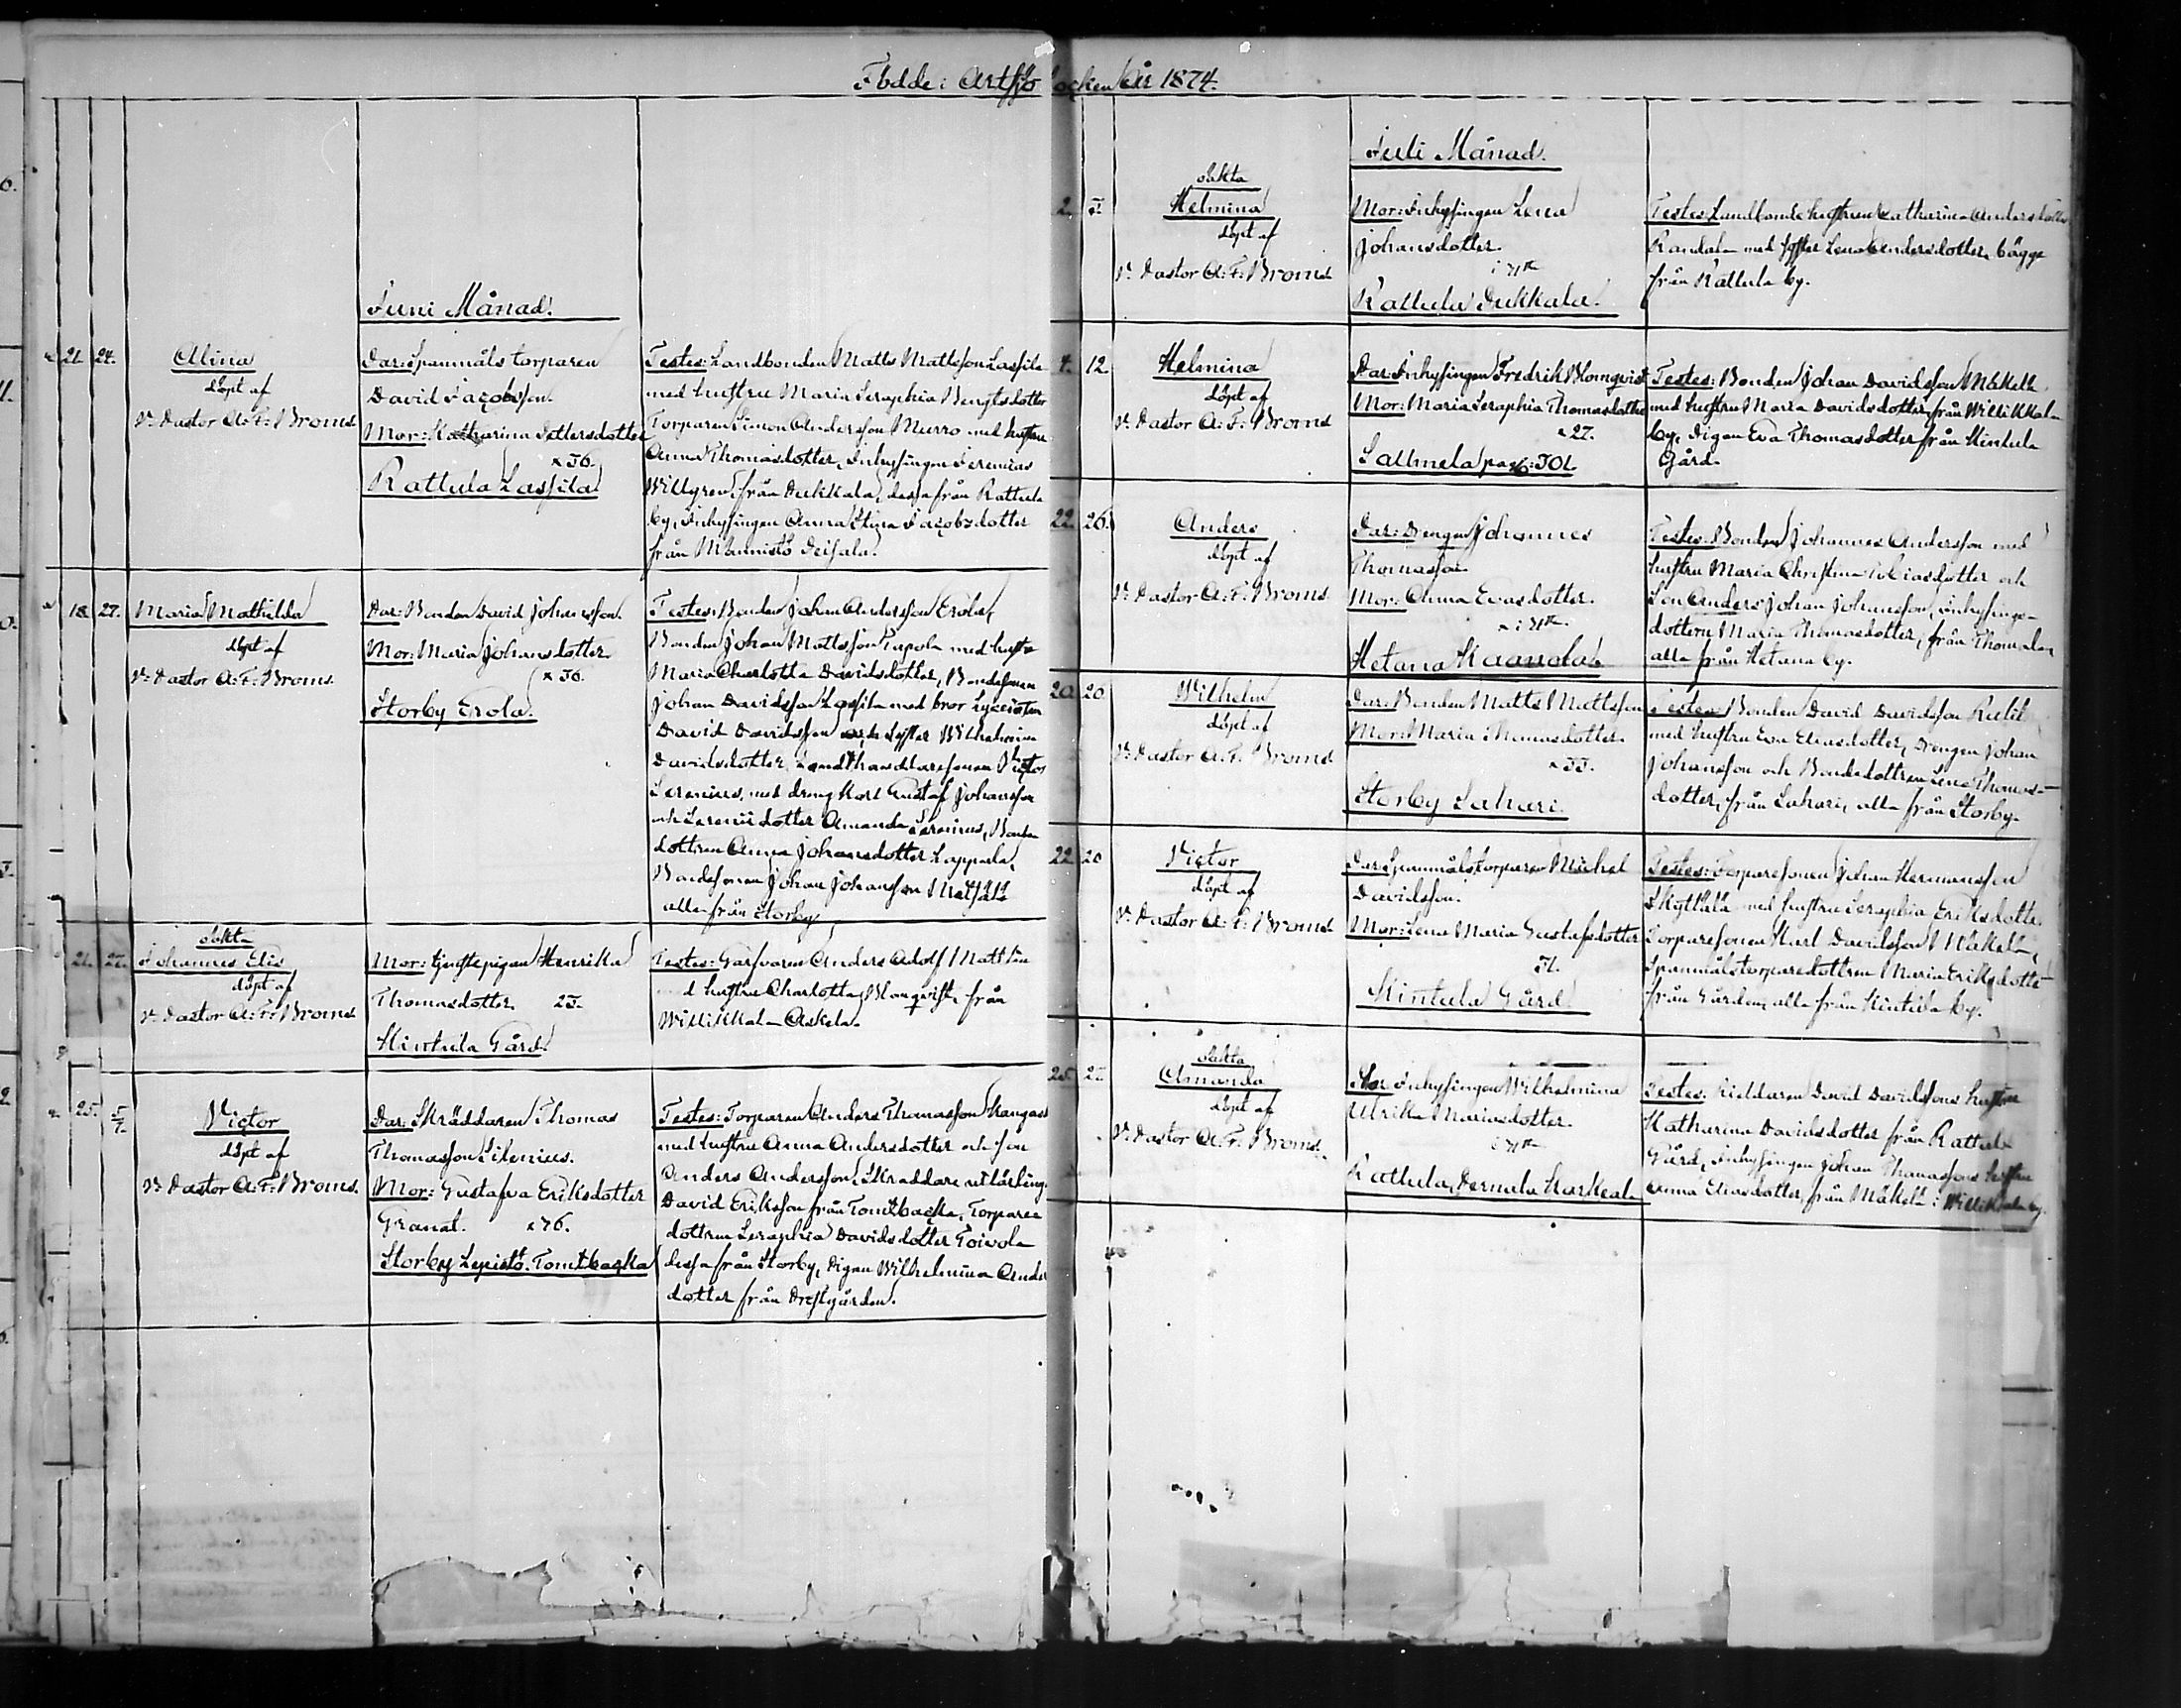 Födde i Artsjö Socken År 1874.
Juni Månad.
21. 24.
Alina
döpt af
V. Pastor A. F. Broms
Par: Spannmåls torparen
David Jacobsson.
Mor: Katharina Pettersdotter
x 36.
Rattula Lassila
Testes: Landbonden Matts Mattsson Lassila
med hustru Maria Seraphia Bengtsdotter
Torparen Simon Andersson Murro med hustru
Anna Thomasdotter, Inhysingen Jeremias
Willgren från Pukkala, dessa från Rattula
by, Inhysingen Anna Stina Jacobsdotter
från Männistö Peisala.
18. 27.
Maria Mathilda
döpt af
V. Pastor A. F. Broms.
Par: Bonden David Johansson.
Mor: Maria Johansdotter.
x 36.
Storby Erola.
Testes: Bonden Johan Andersson Erola,
Bonden Johan Mattsson Parpola med hustru
Maria Charlotta Davidsdotter, Bondesonen
Johan Davidsson Lassila med bror Lyceisten
David Davidsson och Syster Wilhelmina
Davidsdotter, Landthandlaresonen Victor
Serenius, med dreng Karl Gustaf Johansson
och Serenii dotter Amanda Serenius, Bonde
dottren Anna Johansdotter Lappala,
Bondesonen Johan Johansson
alla från Storby
21. 27.
oäkta
Johannes Elis
döpt af
V. Pastor A. F. Broms
Mor: tjenstepigan Henrika
Thomasdotter. 23.
Kintula Gård
Testes: Garfvaren Anders Adolf
med hustru Charlotta Blomqvist, från
Willikkala Askela.
25. 5/7.
Victor
döpt af
V. Pastor A. F. Broms.
Par: Skräddaren Thomas
Thomasson Silenius.
Mor: Gustafva Eriksdotter
Granat. x 76.
Storby Lepistö. Tomtbacka
Testes: Torparen Anders Thomasson Kangas
med hustru Anna Andersdotter och son
Anders Andersson, Skräddare
David Eriksson från Tomtbacka, Torpare
dottren Seraphia Davidsdotter Toivola
dessa från Storby, Pigan Wilhelmina Anders
dotter från Prestgården.
Juli Månad.
2. 5.
oäkta
Helmina
döpt af
V. Pastor A. F. Broms
Mor: Inhysingen Lena
Johansdotter.
i 31te
Rattula Pukkala.
Testes Landbonde hustrun Catharina Andersdotter
Randala med syster Lena Andersdotter, bägge
från Rattula by.
4. 12.
Helmina
döpt af
V. Pastor A. F. Broms
Par: Inhysingen Fredrik Blomqvist
Mor: Maria Seraphia Thomasdotter
x 27.
Sallmela pag: 301.
Testes: Bonden Johan Davidsson Mäkelä
med hustru Maria Davidsdotter, från Willikkala
by, Pigan Eva Thomasdotter från Kintula
Gård.
22. 26.
Anders
döpt af
V. Pastor A. F. Broms
Par: Drengen Johannes
Thomasson
Mor: Anna Evasdotter.
x i 31te.
Hetana Kaanola
Testes: Bonden Johannes Andersson med
hustru Maria Christina Tobiasdotter och
Son Anders Johan Johansson, Inhysinge-
dottern Maria Thomasdotter, från Thomala,
alla från Hetana by.
20 26
Wilhelm
döpt af
V. Pastor A. F. Broms
Par: Bonden Matts Mattsson
Mor: Maria Thomasdotter.
x 33.
Storby Sahari.
Testes: Bonden David Davidsson
med hustru Eva Eliasdotter, Drengen Johan
Johansson och Bondedottren Lena Thomas-
dotter, från Sahari, alla från Storby.
22 26
Victor
döpt af
V. Pastor A. F. Broms
Par: Spannmålstorparen Michel
Davidsson.
Mor: Lena Maria Gustafsdotter
31.
Kintula Gård
Testes: Torparesonen Johan Hermansson
Skyttälä med hustru Seraphia Eriksdotter
Torparesonen Karl Davidsson Mäkelä,
Spannmålstorparedottren Maria Eriksdotter
från Gården, alla från Kintula by.
25. 27
oäkta
Amanda
döpt af
V. Pastor A. F. Broms.
Mor Inhysingen Wilhelmina
Ulrika Mariasdotter.
i 31te
Rattula, Pernala Karkeala
Testes: David Davidssons hustru
Katharina Davidsdotter från Rattula
Gård, Inhysingen Johan Thomassons hustru
Anna Eliasdotter, från Mäkelä i Willikkala by.